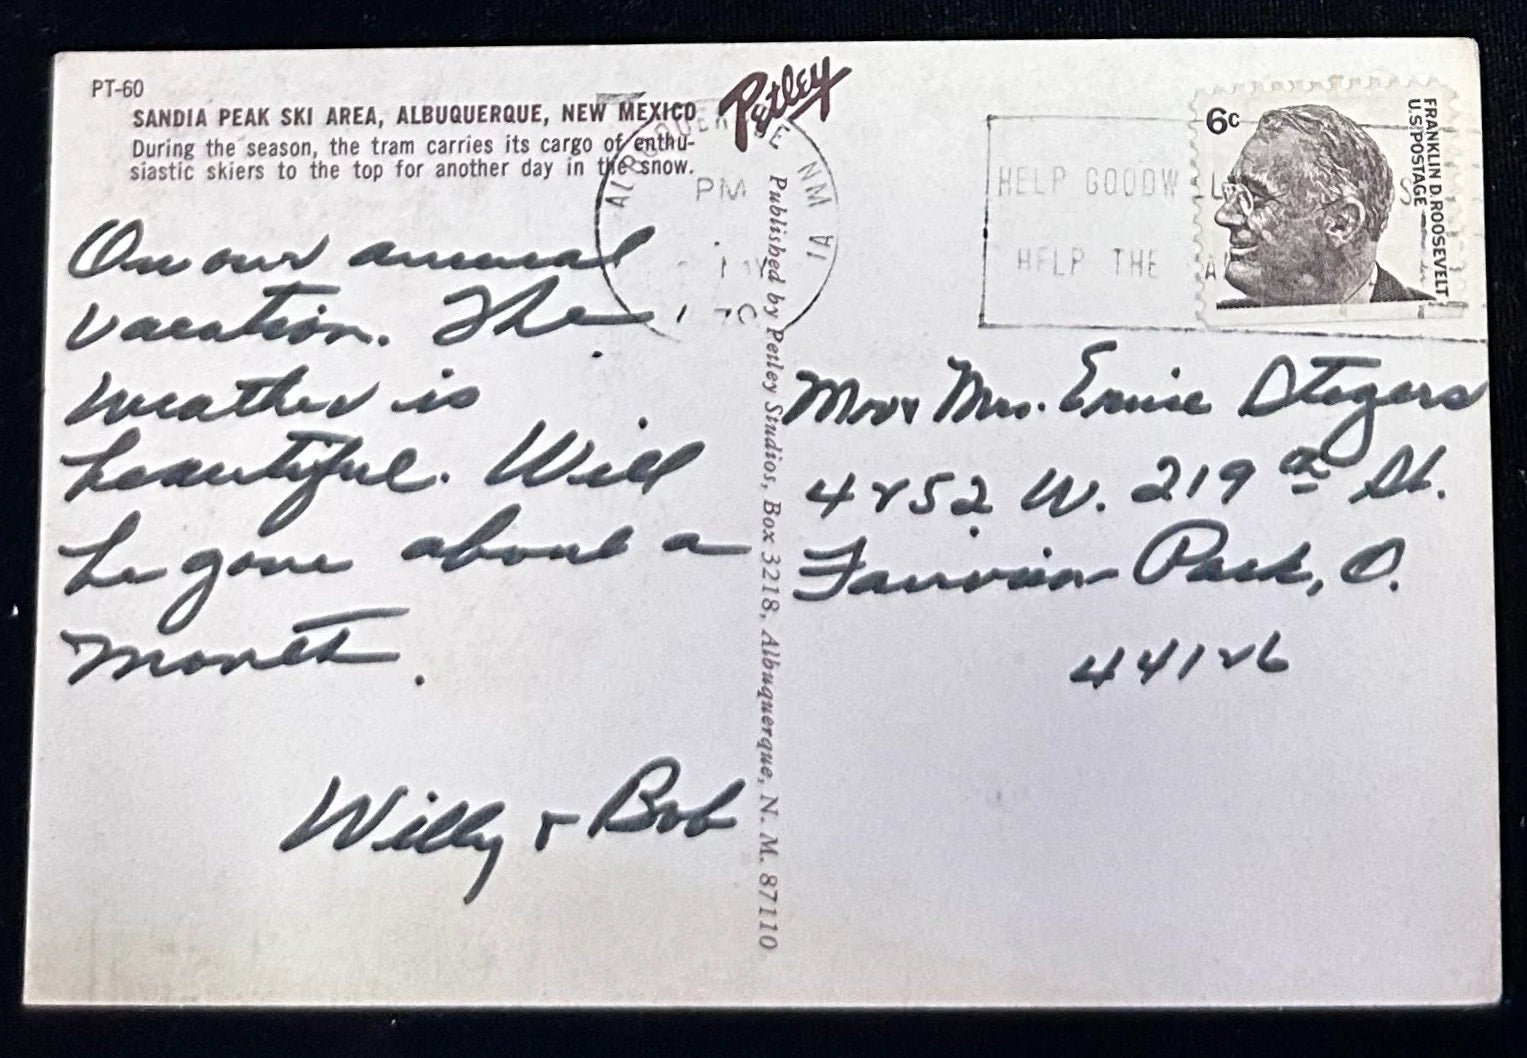 PT-60
SANDIA PEAK SKI AREA, ALBUQUERQUE, NEW MEXICO
During the season, the tram carries its cargo of enthu-
siastic skiers to the top for another day in the snow.
On our annual
vacation. The
weather is
beautiful. Will
be gone about a
month.
Willy & Bob
Petley
Published by Petley Studios, Box 3218, Albuquerque, N. M. 87110
ALBUQUERQUE NM
PM
HELP GOODWILL
HELP THE
6c
FRANKLIN D. ROOSEVELT
U.S. POSTAGE
Mr & Mrs. Ernie Stegers
4252 W. 219th St.
Fairview Park, O.
44126